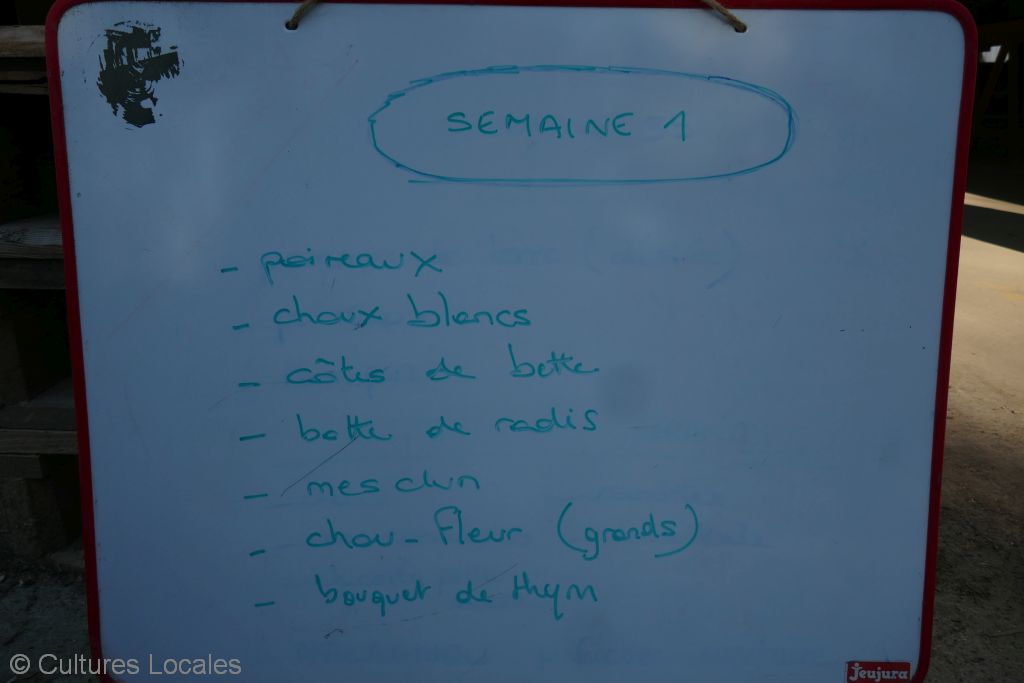 SEMAINE 1
- poireaux
- choux blancs
- côtes de bette
- botte de radis
- mesclun
- chou-fleur (grands)
- bouquet de thym
© Cultures Locales
Jeujura